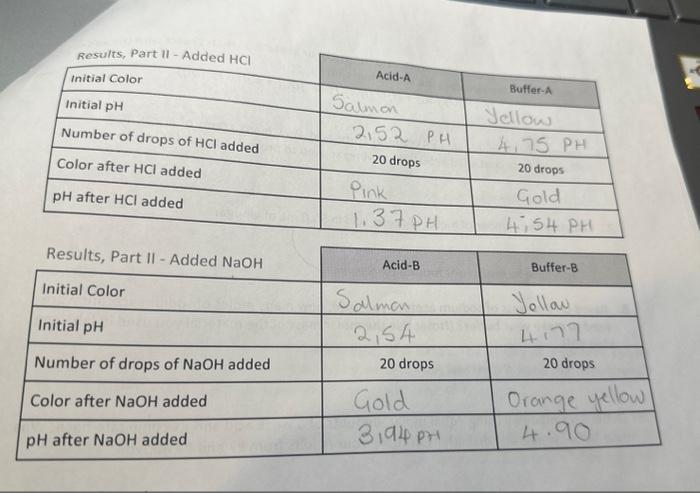 Results, Part II - Added HCl
Acid-A Buffer-A
Initial Color Salmon Yellow
Initial pH 2,52 PH 4,75 PH
Number of drops of HCl added 20 drops 20 drops
Color after HCl added Pink Gold
pH after HCl added 1.37 PH 4,54 PH
Results, Part II - Added NaOH Acid-B Buffer-B
Initial Color Salmon Yollow
Initial pH 2,54 4,77
Number of drops of NaOH added 20 drops 20 drops
Color after NaOH added Gold Orange yellow
pH after NaOH added 3,94 PH 4.90